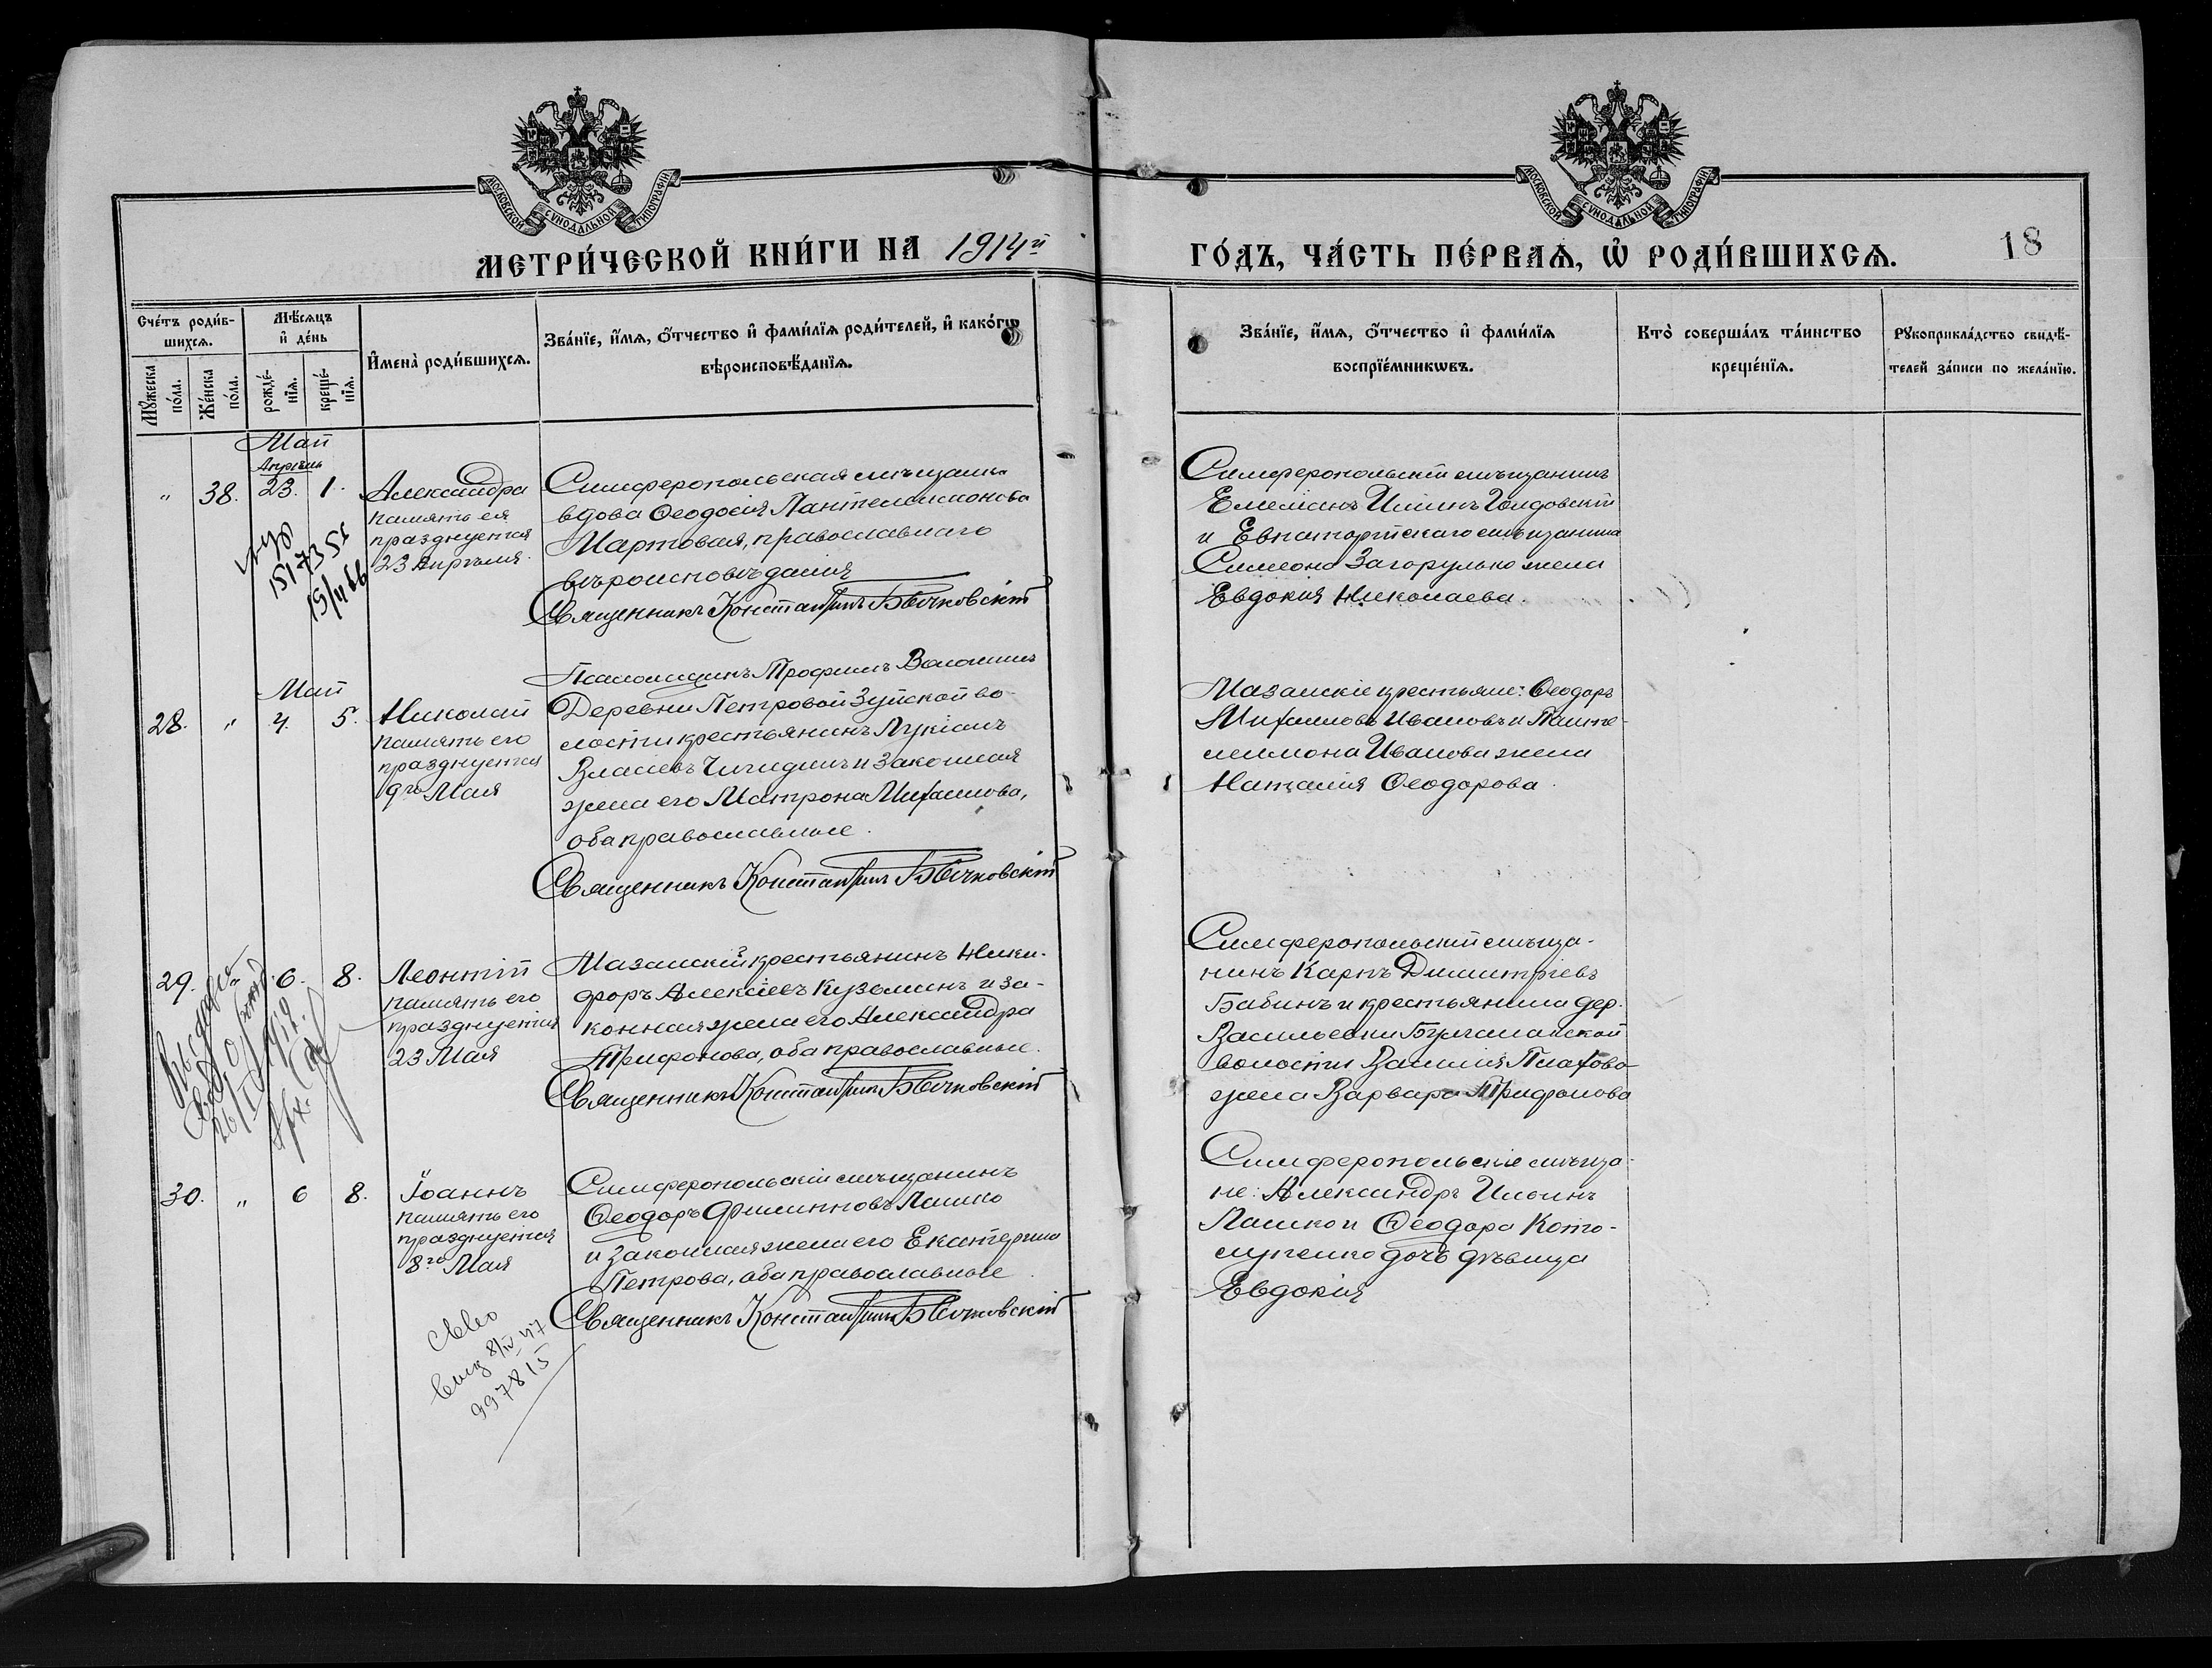 МОСКОВСКОЙ СѴНОДАЛЬНОЙ ТИПОГРАФІИ
МОСКОВСКОЙ СѴНОДАЛЬНОЙ ТИПОГРАФІИ
МЕТРИ́ЧЕСКОЙ КНИ́ГИ НА 1914й
ГО́ДЪ, ЧА́СТЬ ПЕ́РВАѦ, Ѡ҆ РОДИ́ВШИХСѦ.
18
Сче́тъ роди́в-
шихсѧ.
Мꙋ́жеска по́ла.
Же́нска по́ла.
Мѣ́сѧцъ
и҆ де́нь
рожде́-
нїѧ.
креще́-
нїѧ.
И҆мена̀ роди́вшихсѧ.
Зва́нїе, и҆́мѧ, ѻ҆́тчество и҆ фами́лїѧ роди́телей, и҆ како́гѡ
вѣроисповѣ́данїѧ.
Зва́нїе, и҆́мѧ, ѻ҆́тчество и҆ фами́лїѧ
воспрїе́мникѡвъ.
Кто̀ соверша́лъ та́инство
креще́нїѧ.
Рꙋкоприкла́дство свидѣ́-
телей за́писи по жела́нїю.
Май
Апрѣль
" 38. 23. 1.
Александра
память ея
празднуется
23 Апрѣля.
Симферопольская мѣщанка
вдова Ѳеодосія Пантелеимонова
Мартовая, православнаго
вѣроисповѣданія
Священникъ Константинъ Бычковскій
Симферопольскій мѣщанинъ
Емеліанъ Ильинъ
и Евпаторійскаго мѣщанина
Симеона Загорулько жена
Евдокія Николаева.
151735
15/II 66
Псаломщикъ Трофимъ Волошинъ
Май
28. " 4. 5.
Николай
память его
празднуется
9го Мая
Деревни Петровой Зуйской во-
лости крестьянинъ Лукіанъ
Власіевъ Чигидинъ и законная
жена его Матрона Михаилова,
оба православные.
Священникъ Константинъ Бычковскій
Мазанскіе крестьяне: Ѳеодоръ
Михаиловъ Ивановъ и Панте-
леимона Иванова жена
Наталія Ѳеодорова.
29. " 6. 8.
Леонтій
память его
празднуется
23 Мая
Мазанскій крестьянинъ Ники-
форъ Алексіевъ Кузьминъ и за-
конная жена его Александра
Трифонова, оба православные.
Священникъ Константинъ Бычковскій
Симферопольскій мѣща-
нинъ Карпъ Димитріевъ
Бабинъ и крестьянина дер.
Васильевки Булганакской
волости Василія Плахова
жена Варвара Трифонова
30. " 6 8.
Іоаннъ
память его
празднуется
8го Мая
Симферопольскій мѣщанинъ
Ѳеодоръ Филипповъ Лашко
и законная жена его Екатерина
Петрова, оба православные.
Священникъ Константинъ Бычковскій
Симферопольскіе мѣща-
не: Александръ Ильинъ
Лашко и Ѳеодора Кото-
лупенко дочь дѣвица
Евдокія
8/IV 47
997815